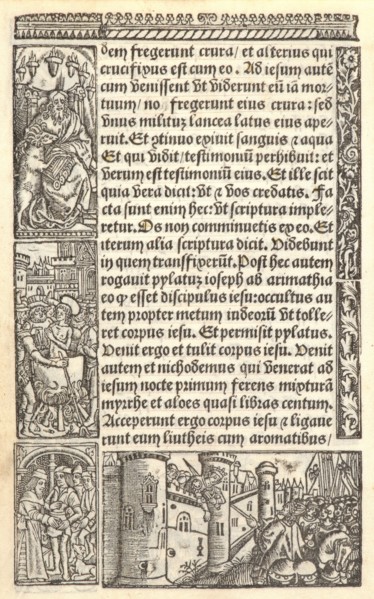 dem fregerunt crura/ et alterius qui
crucifixus est cum eo. Ad iesum autē
cum venissent vt viderunt eū iā mor-
tuum/ nō fregerunt eius crura: sed
vnus milituꝫ lancea latus eius ape-
ruit. Et ꝯtinuo exiuit sanguis ⁊ aqua
Et qui vidit/testimoniū perhibuit: et
verum est testimoniū eius. Et ille scit
quia vera dicit: vt ⁊ vos credatis. Fa
cta sunt enim hec: vt scriptura imple-
retur. Os non comminuetis ex eo. Et
iterum alia scriptura dicit. Videbunt
in quem transfixerūt. Post hec autem
rogauit pylatuꝫ ioseph ab arimathia
eo ꝙ esset discipulus iesu: occultus au
tem propter metum iudeorū vt tolle-
ret corpus iesu. Et permisit pylatus.
Venit ergo et tulit corpus iesu. Venit
autem et nichodemus qui venerat ad
iesum nocte primum ferens mixturā
myrrhe et aloes quasi libras centum.
Acceperunt ergo corpus iesu ⁊ ligaue
runt eum liutheis cum aromatibus/